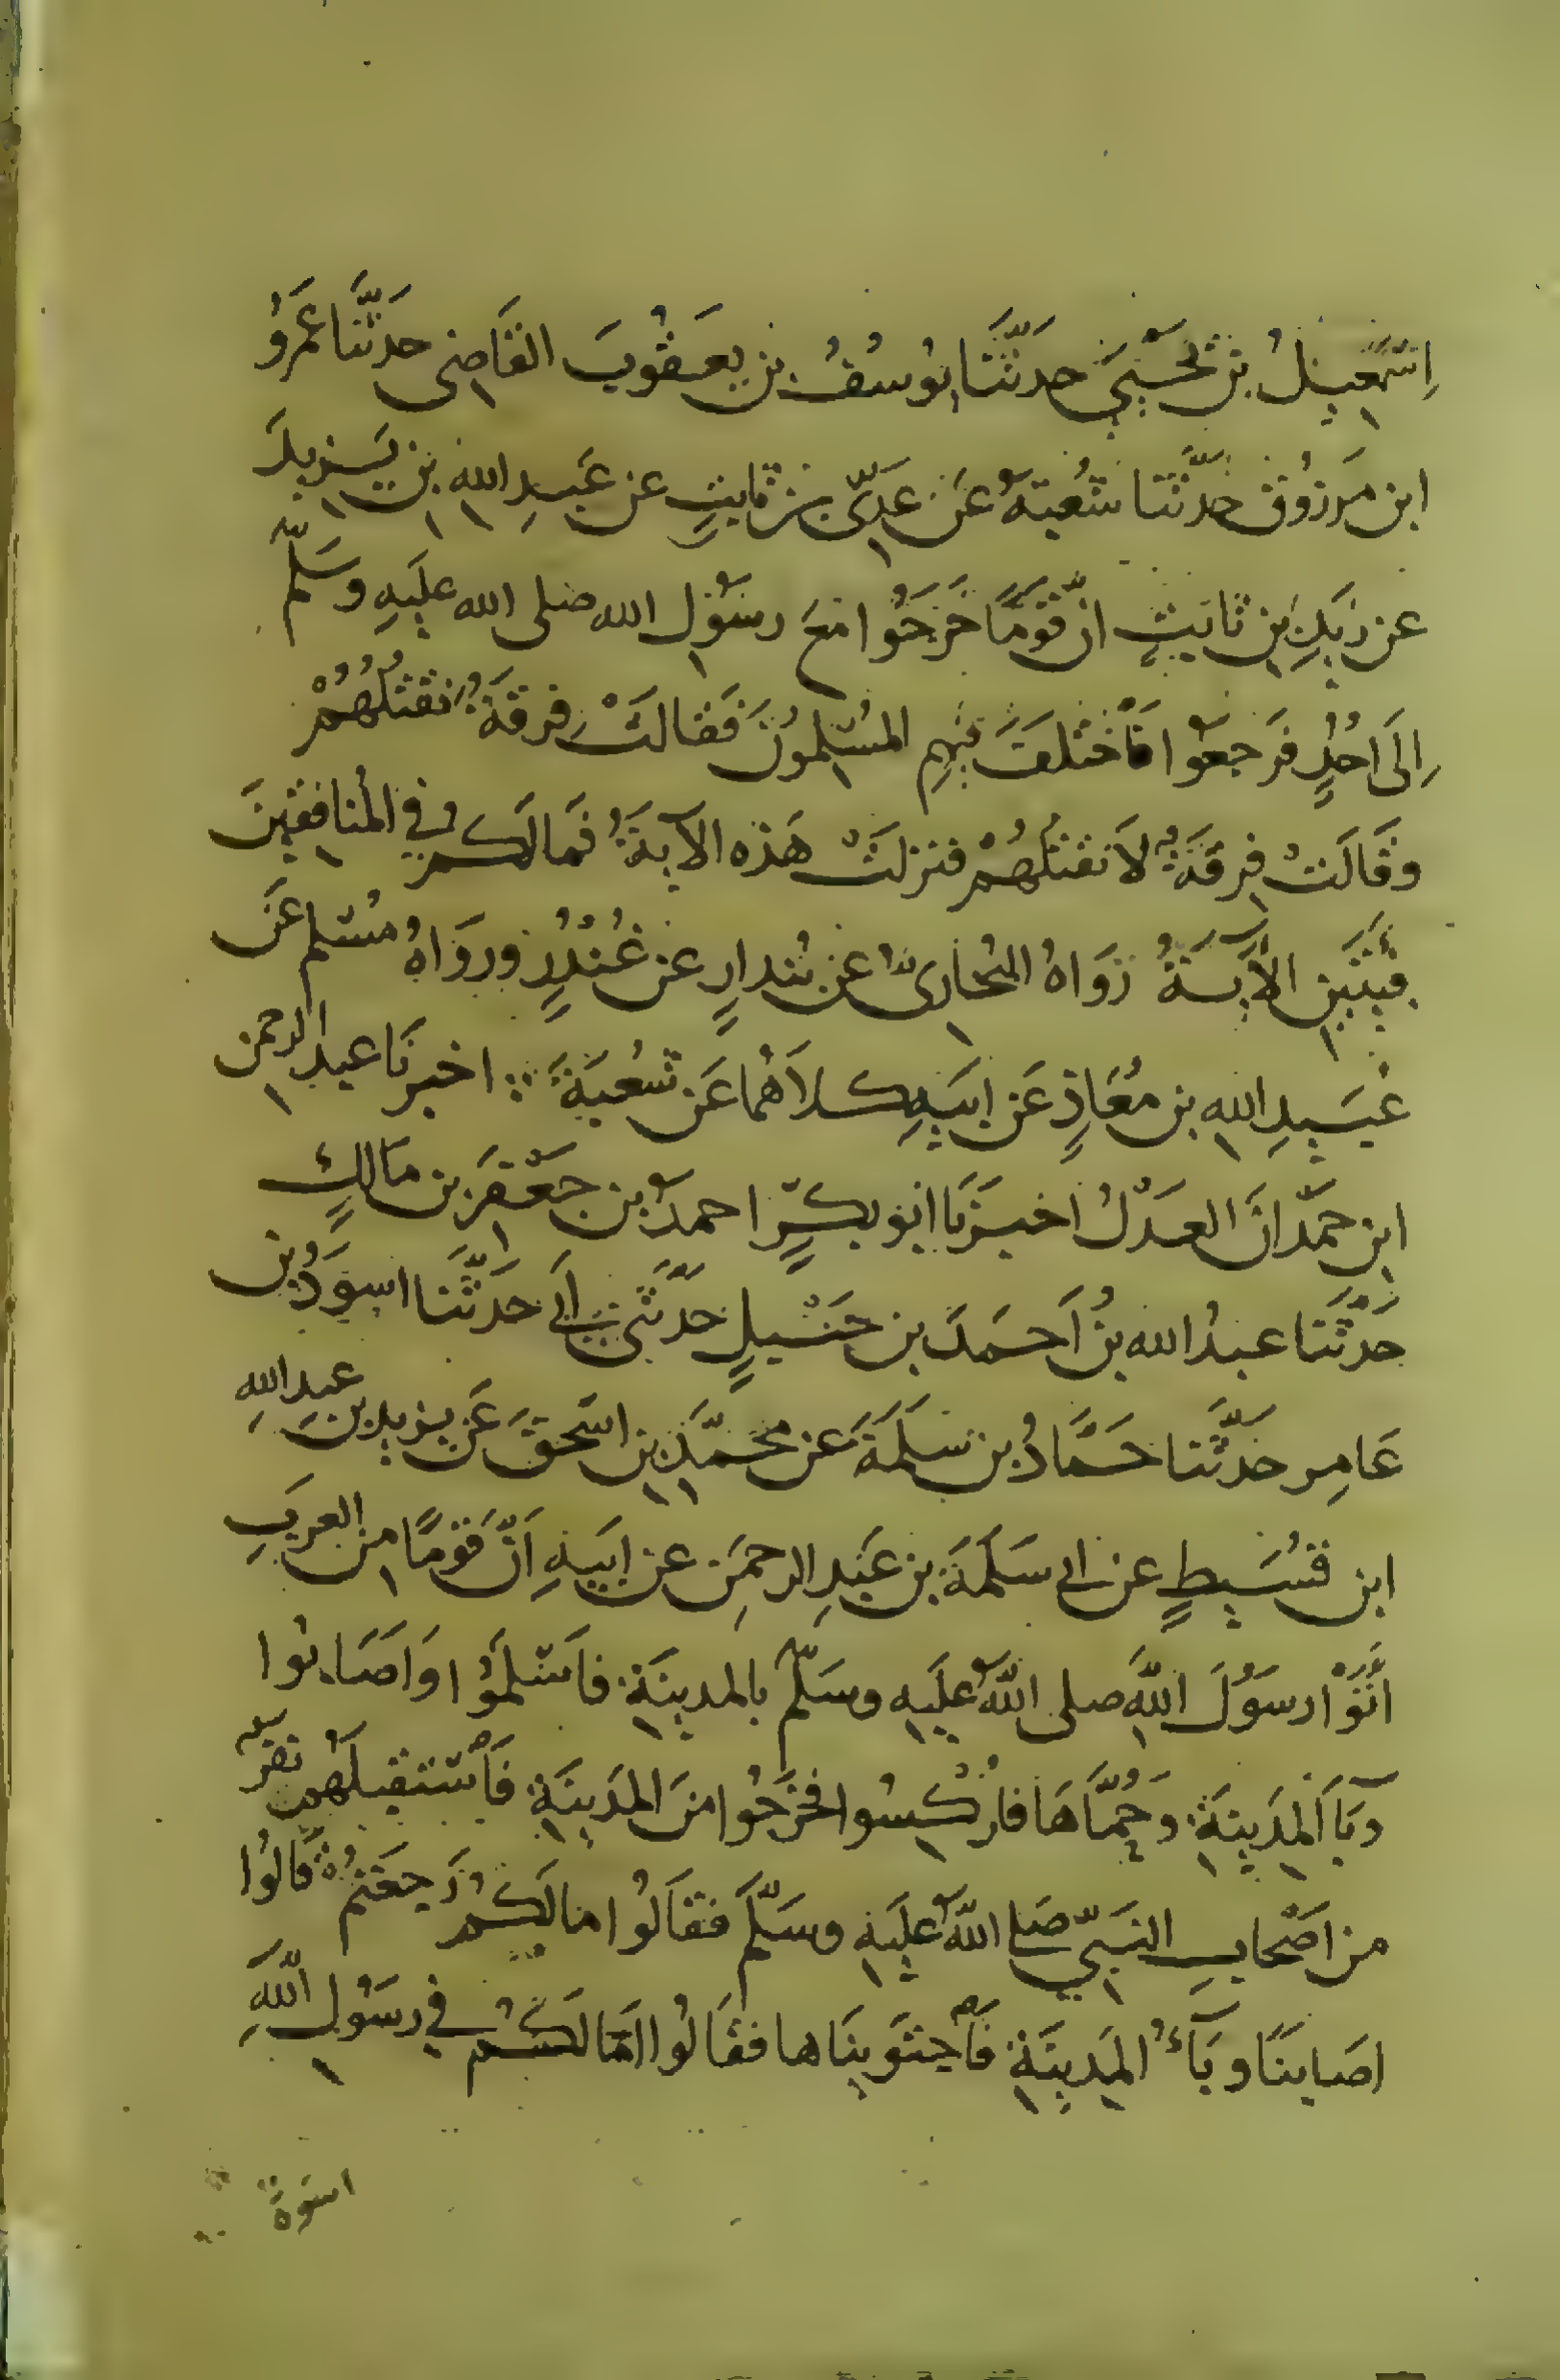 اِسْمَعِيلُ بن نُجَيد حَدَّثَنَا يُوسُفُ بن يَعقُوبَ القَاضِى حَدَّثَنَا عَمرُو
ابن مَرزُوق حدثنا شُعبَة عَن عَدِىّ بن ثابِتٍ عن عَبدِ الله بن يَزيدَ
عن زَيدِ بن ثابتٍ انّ قومًا خَرَجُوا مَعَ رسُول الله صلى الله عليَهِ وسَلّم
اِلَى اُحُدٍ فَرَجعُوا فَاْختلَفَ فيهِم المسُلِمُونَ فَقالَتْ فِرقَةٌ نَقتُلُهُمْ
وقَالَتْ فِرقَةٌ لَا نقتُلُهُمْ فنزلَتْ هَذه الآيةُ فَمالَكم في المُنافقِينَ
فِئَتَين الآيَةُ رَوَاهُ البُخارىُّ عن بُندارٍ عن غُنْدُرٍ ورَوَاهُ مُسْلم عَن
عُبَيدِ اللهِ بن مُعَاذٍ عَن اَبيهِ كلاَهُما عَن شُعبَةَ اخبرنَا عبد الرحمن
ابن حمدَانَ العَدْلُ اخبَرَنَا ابو بكرٍ احمدُ بن جَعْفَر بن مَالكٍ
حَدَّثَنا عبدُ الله بنُ اَحمَدَ بن حَنْبلٍ حَدّثَنى اَبي حَدَّثَنا اسوَدُ بن
عَامِر حدثَنا حَمَّادُ بن سَلَمَةَ عن محمّدِ بن اسْحقَ عَن يزيدِ بن عبدِ اللهِ
ابن قسَيطٍ عن ابي سَلَمَةَ بن عَبدِ الرحمَن عن ابيهِ اَنَّ قومًا من العربِ
اَتَوْا رسُولَ اللهِ صلى اللهُ عليَهِ وسَلّمَ بالمدينَةِ فاَسْلَمُوا وَاَصَابُوا
وَبَآ المدَينَةِ وَحُمَّاهَا فارُكِسُوا فخَرَجُوا منَ المدَينَةِ فَاْستقبلَهُم نَفَرٌ
من اصْحابِ النبَيِّ صَلى اللهُ عليَهِ وسَلّمَ فقَالُوا مالَكُم رَجعَتمُ قَالُوا
اصَابنَا وبَآءُ المدَينَةِ فَاْجتَوَينَاها فقَالُوا امَا لَكُم في رسُول اللهِ
اسوة